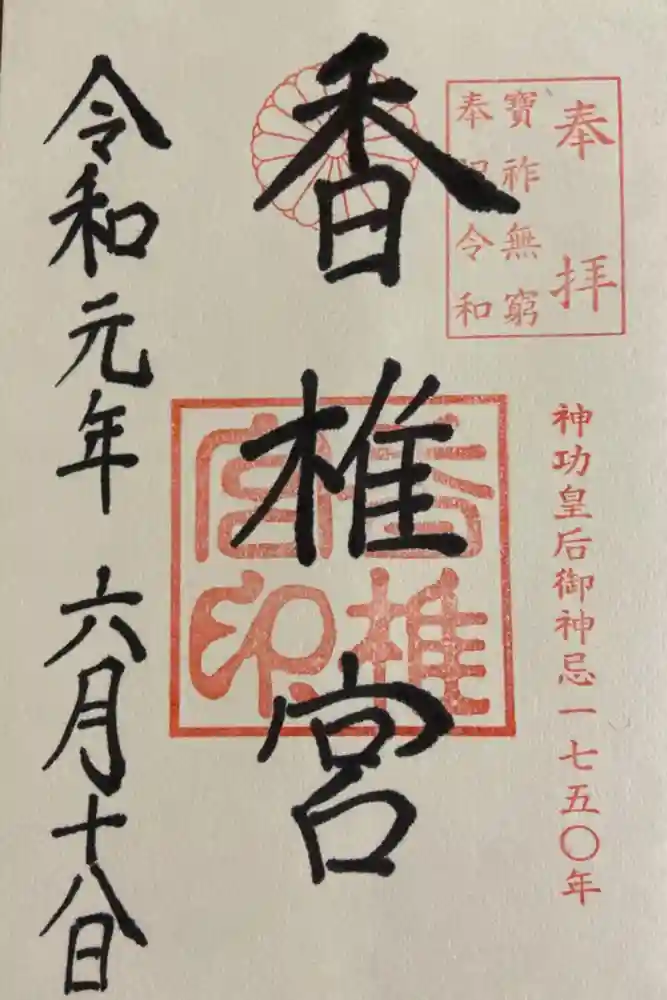 奉拝
寶祚無窮
奉祝令和
神功皇后御神忌一七五〇年
香椎宮
香椎
宮印
令和元年 六月十八日